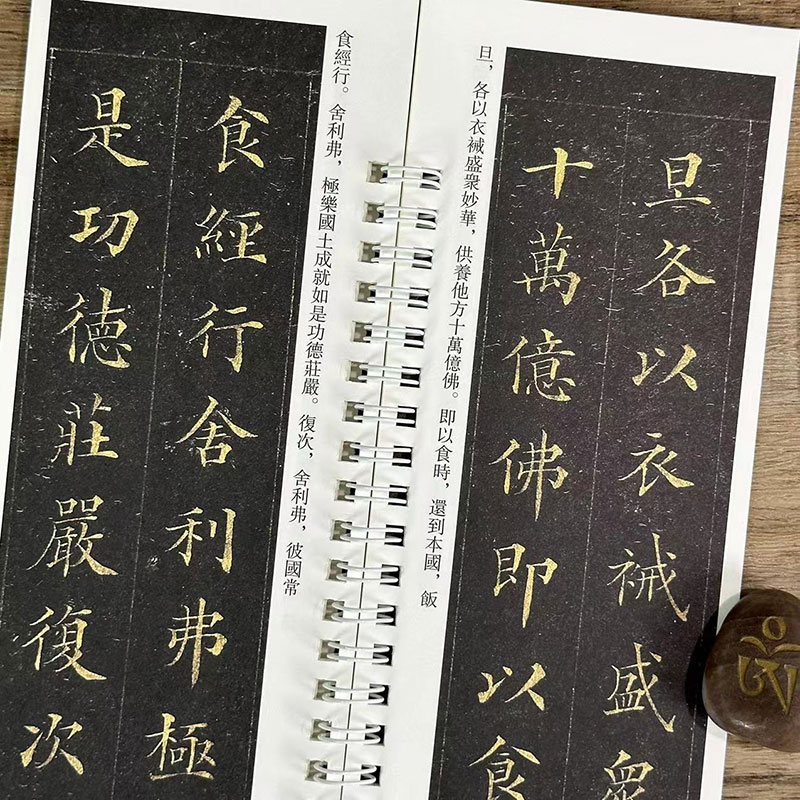 旦各以衣裓盛衆
十萬億佛即以食
旦，各以衣裓盛衆妙華，供養他方十萬億佛。即以食時，還到本國，飯
食經行。舍利弗，極樂國土成就如是功德莊嚴。復次，舍利弗，彼國常
食經行舍利弗極
是功德莊嚴復次
ༀ